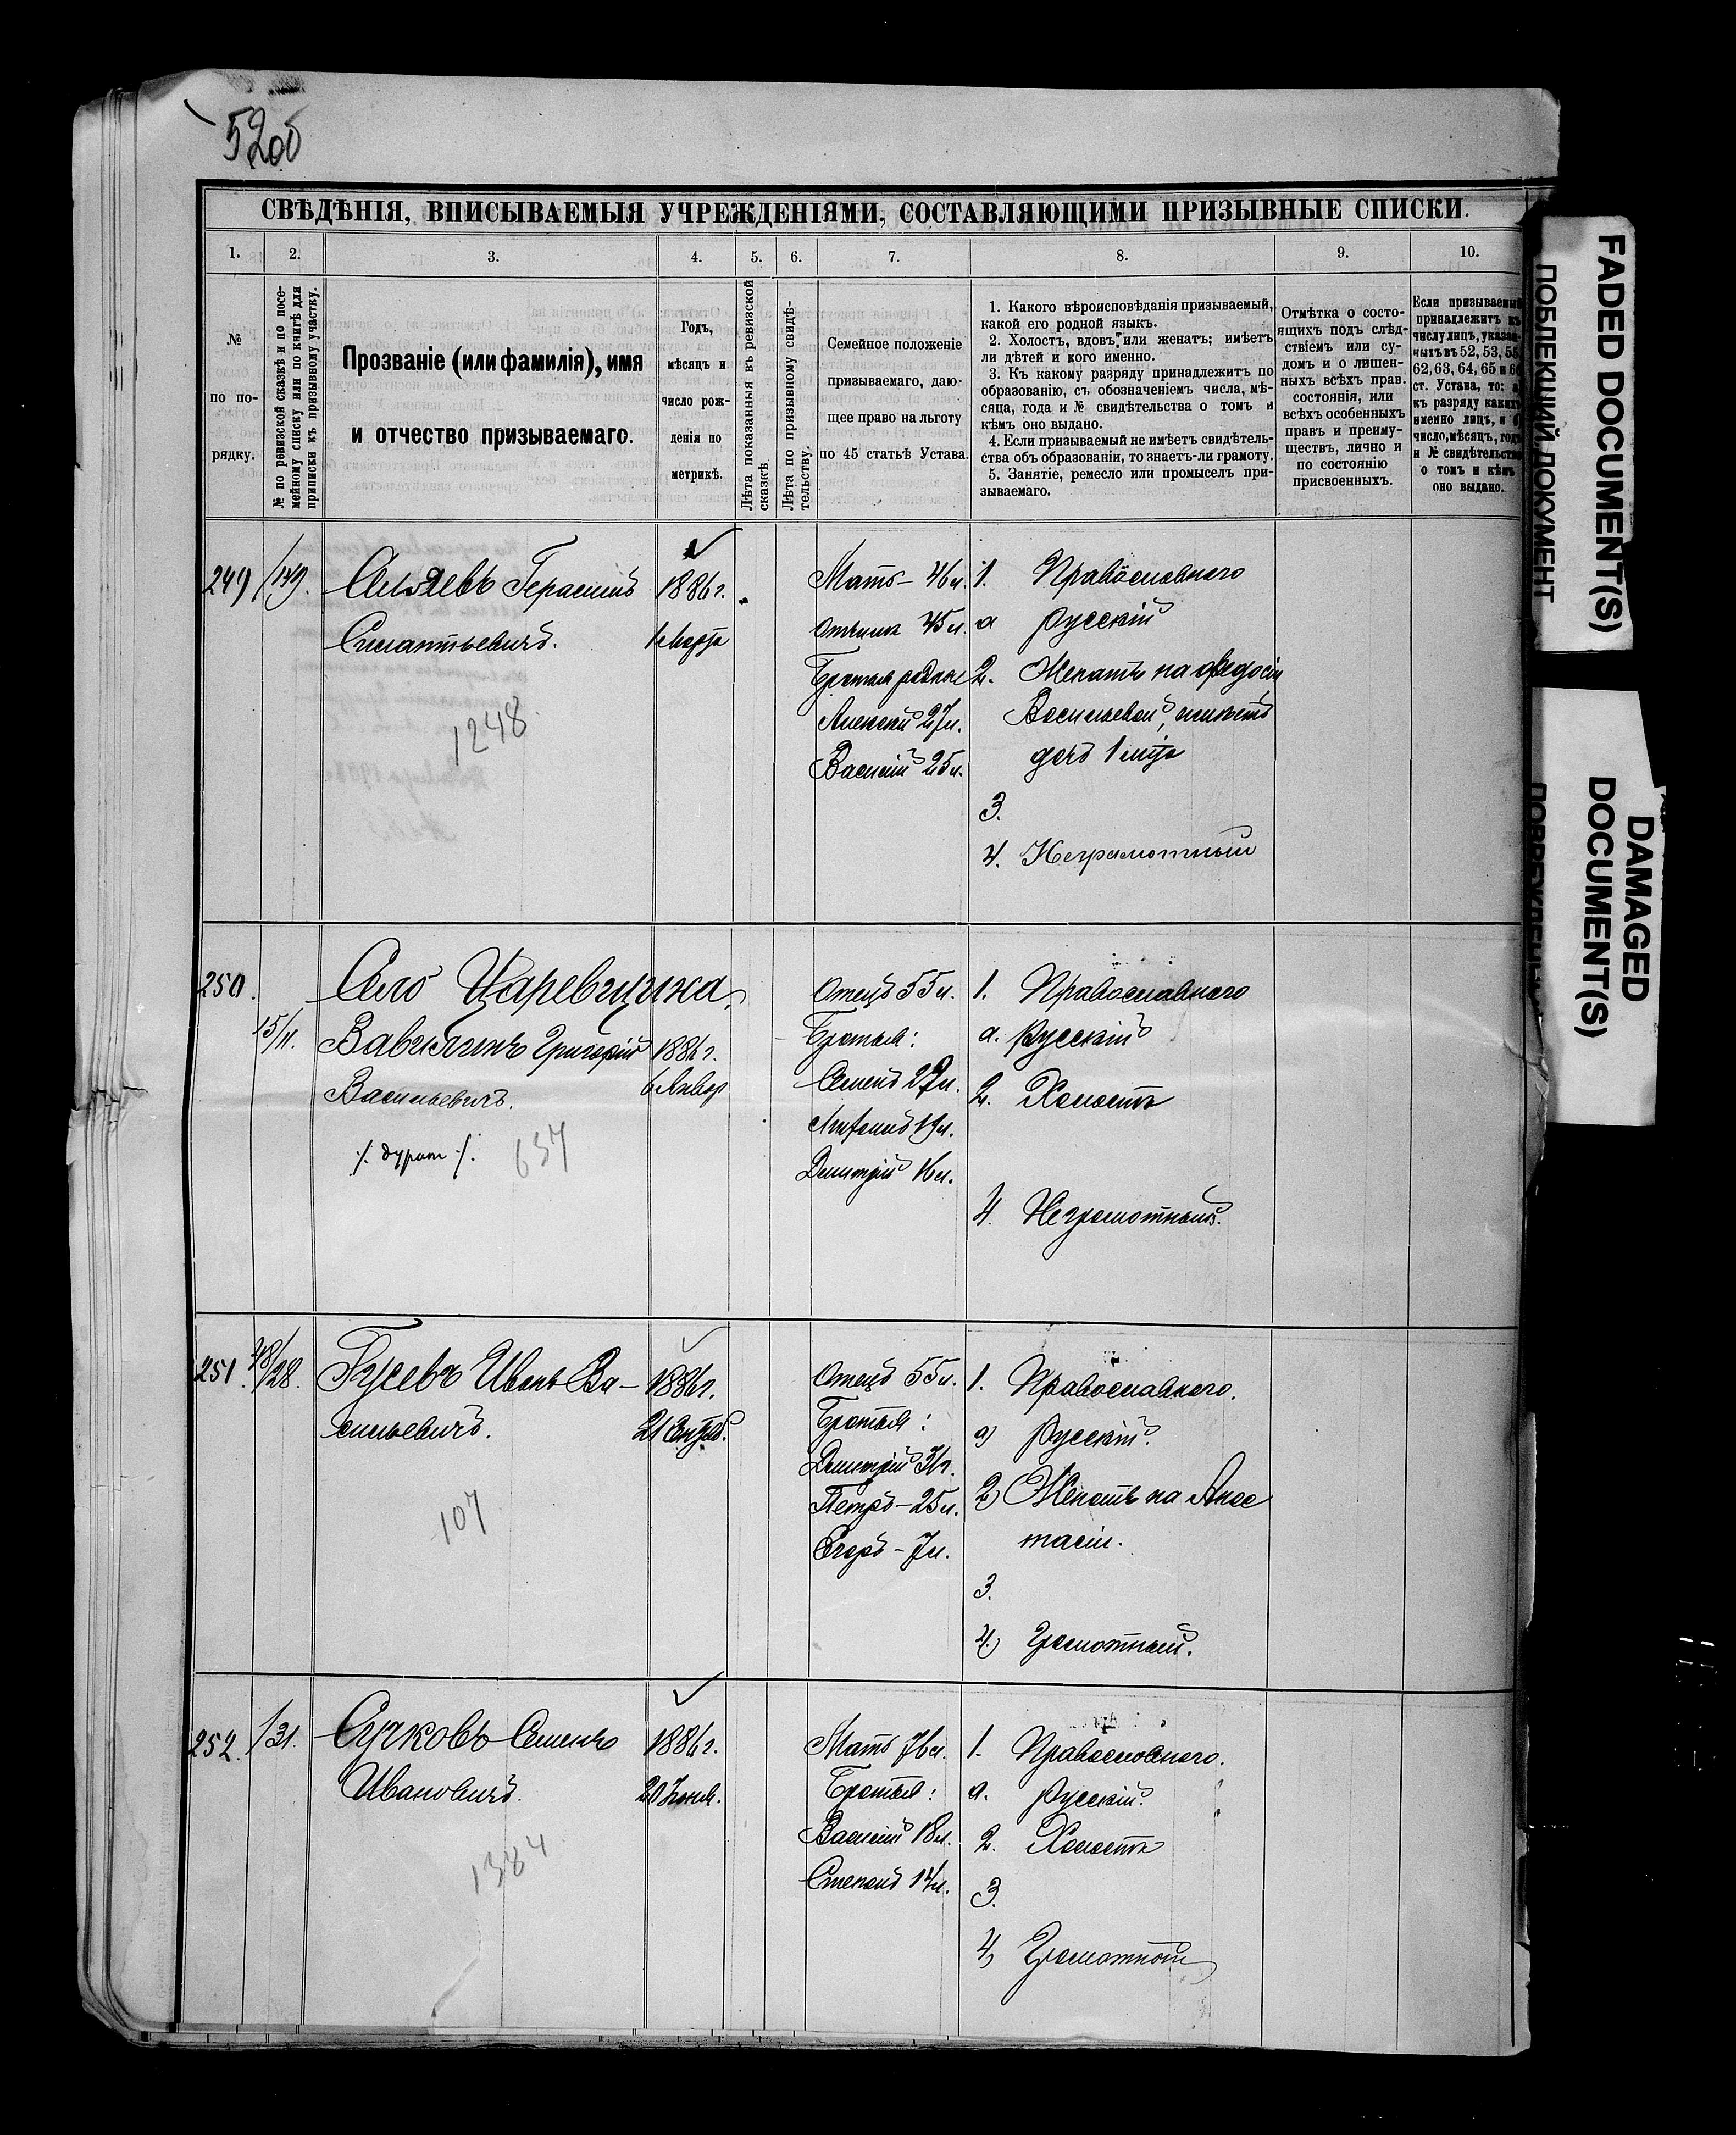 520об
СВѢДѢНІЯ, ВПИСЫВАЕМЫЯ УЧРЕЖДЕНІЯМИ, СОСТАВЛЯЮЩИМИ ПРИЗЫВНЫЕ СПИСКИ.
1. 2. 3. 4. 5. 6. 7. 8. 9. 10.
№
по по-
рядку.
№ по ревизской сказкѣ и по посе-
мейному списку или по книгѣ для
приписки къ призывному участку.
Прозваніе (или фамилія), имя
и отчество призываемаго.
Годъ,
мѣсяцъ и
число рож-
денія по
метрикѣ.
Лѣта показанныя въ ревизской
сказкѣ.
Лѣта по призывному свидѣ-
тельству.
Семейное положеніе
призываемаго, даю-
щее право на льготу
по 45 статьѣ Устава.
1. Какого вѣроисповѣданія призываемый,
какой его родной языкъ.
2. Холостъ, вдовъ или женатъ; имѣетъ
ли дѣтей и кого именно.
3. Къ какому разряду принадлежитъ по
образованію, съ обозначеніемъ числа, мѣ-
сяца, года и № свидѣтельства о томъ и
кѣмъ оно выдано.
4. Если призываемый не имѣетъ свидѣтель-
ства объ образованіи, то знаетъ-ли грамоту.
5. Занятіе, ремесло или промыселъ при-
зываемаго.
Отмѣтка о состо-
ящихъ подъ слѣд-
ствіемъ или су-
домъ и о лишен-
ныхъ всѣхъ прав.
состоянія, или
всѣхъ особенныхъ
правъ и преиму-
ществъ, лично и
по состоянію
присвоенныхъ.
Если призываемый
принадлежитъ къ
числу лицъ, указан-
ныхъ въ 52, 53, 55,
62, 63, 64, 65 и 66
ст. Устава, то: а)
къ разряду какихъ
именно лицъ, и б)
число, мѣсяцъ, годъ
и № свидѣтельства
о томъ и кѣмъ
оно выдано.
249
/149.
Герасимъ
1248
1886 г.
1 Марта
Мать - 46 л.
Отчимъ 45 л.
Братья родные
Алексѣй 27 л.
Василій 25 л.
1. Православнаго
а Русскій
2. Женатъ на Федосіи
Васильевой, имѣетъ
дочь 1 мѣс
3.
4. Неграмотный
250.
15/11.
Село Царевщина,
Вавилинъ Григорій
Васильевичъ.
637
1886 г.
6 Январ
Отецъ 55 л.
Братья:
Семенъ 27 л.
Антонъ 19 л.
Дмитрій 16 л.
1. Православнаго
а. Русскій
2. Холостъ
4. Неграмотный.
251.
/28.
Гусевъ Иванъ Ва-
сильевичъ.
107
1886 г.
21 Сентяб.
Отецъ 55 л.
Братья:
Дмитрій 31 г.
Петръ - 25 л.
Егоръ - 7 л.
1. Православнаго.
а) Русскій.
2) Женатъ на Анас
тасіи.
3.
4) Грамотный.
252.
/31.
Сучковъ Семенъ
Ивановичъ.
1384
1886 г.
20 Іюня.
Мать
Братья:
Василій 18 л.
Степанъ 14 л.
1. Православнаго.
а. Русскій.
2. Холостъ
3.
4) Грамотный
FADED DOCUMENT(S)
ПОБЛЕКШИЙ ДОКУМЕНТ
DAMAGED
DOCUMENT(S)